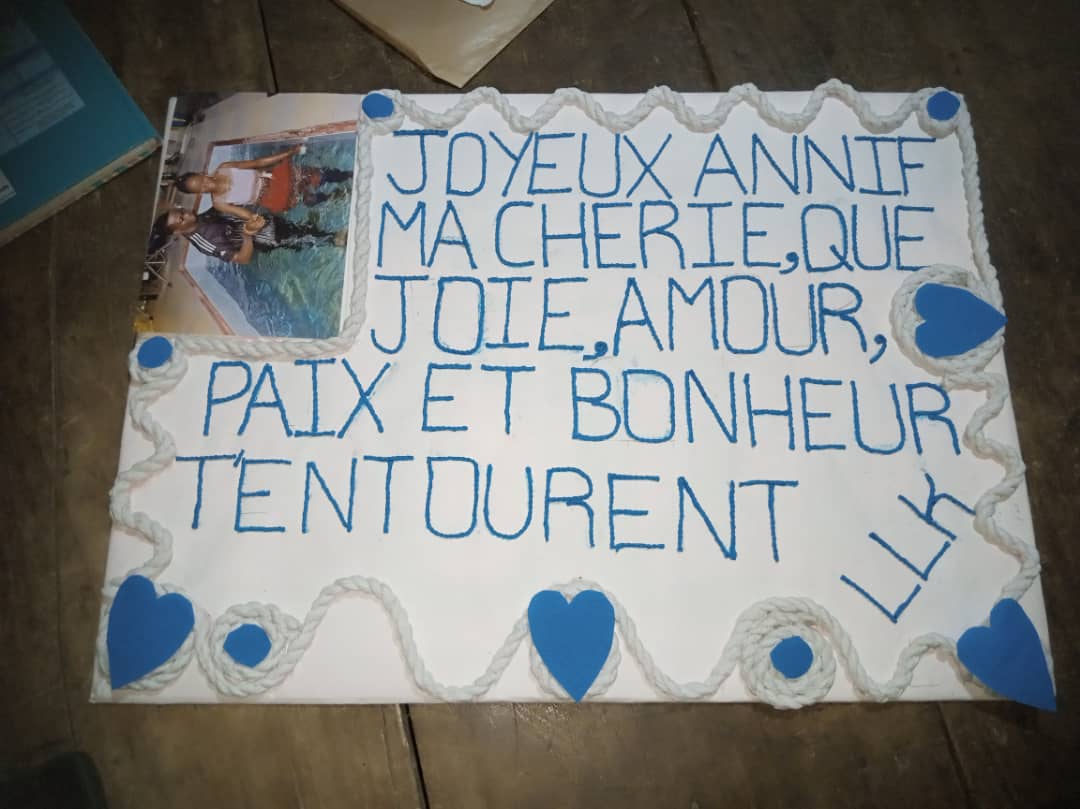 JOYEUX ANNIF
MA CHERIE,QUE
JOIE,AMOUR,
PAIX ET BONHEUR
T'ENTOURENT
LLK